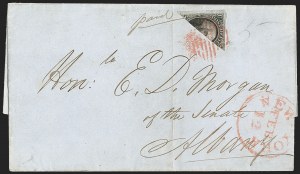 paid
Hon. E. D. Morgan
of the Senate
Albany
NEW
YORK